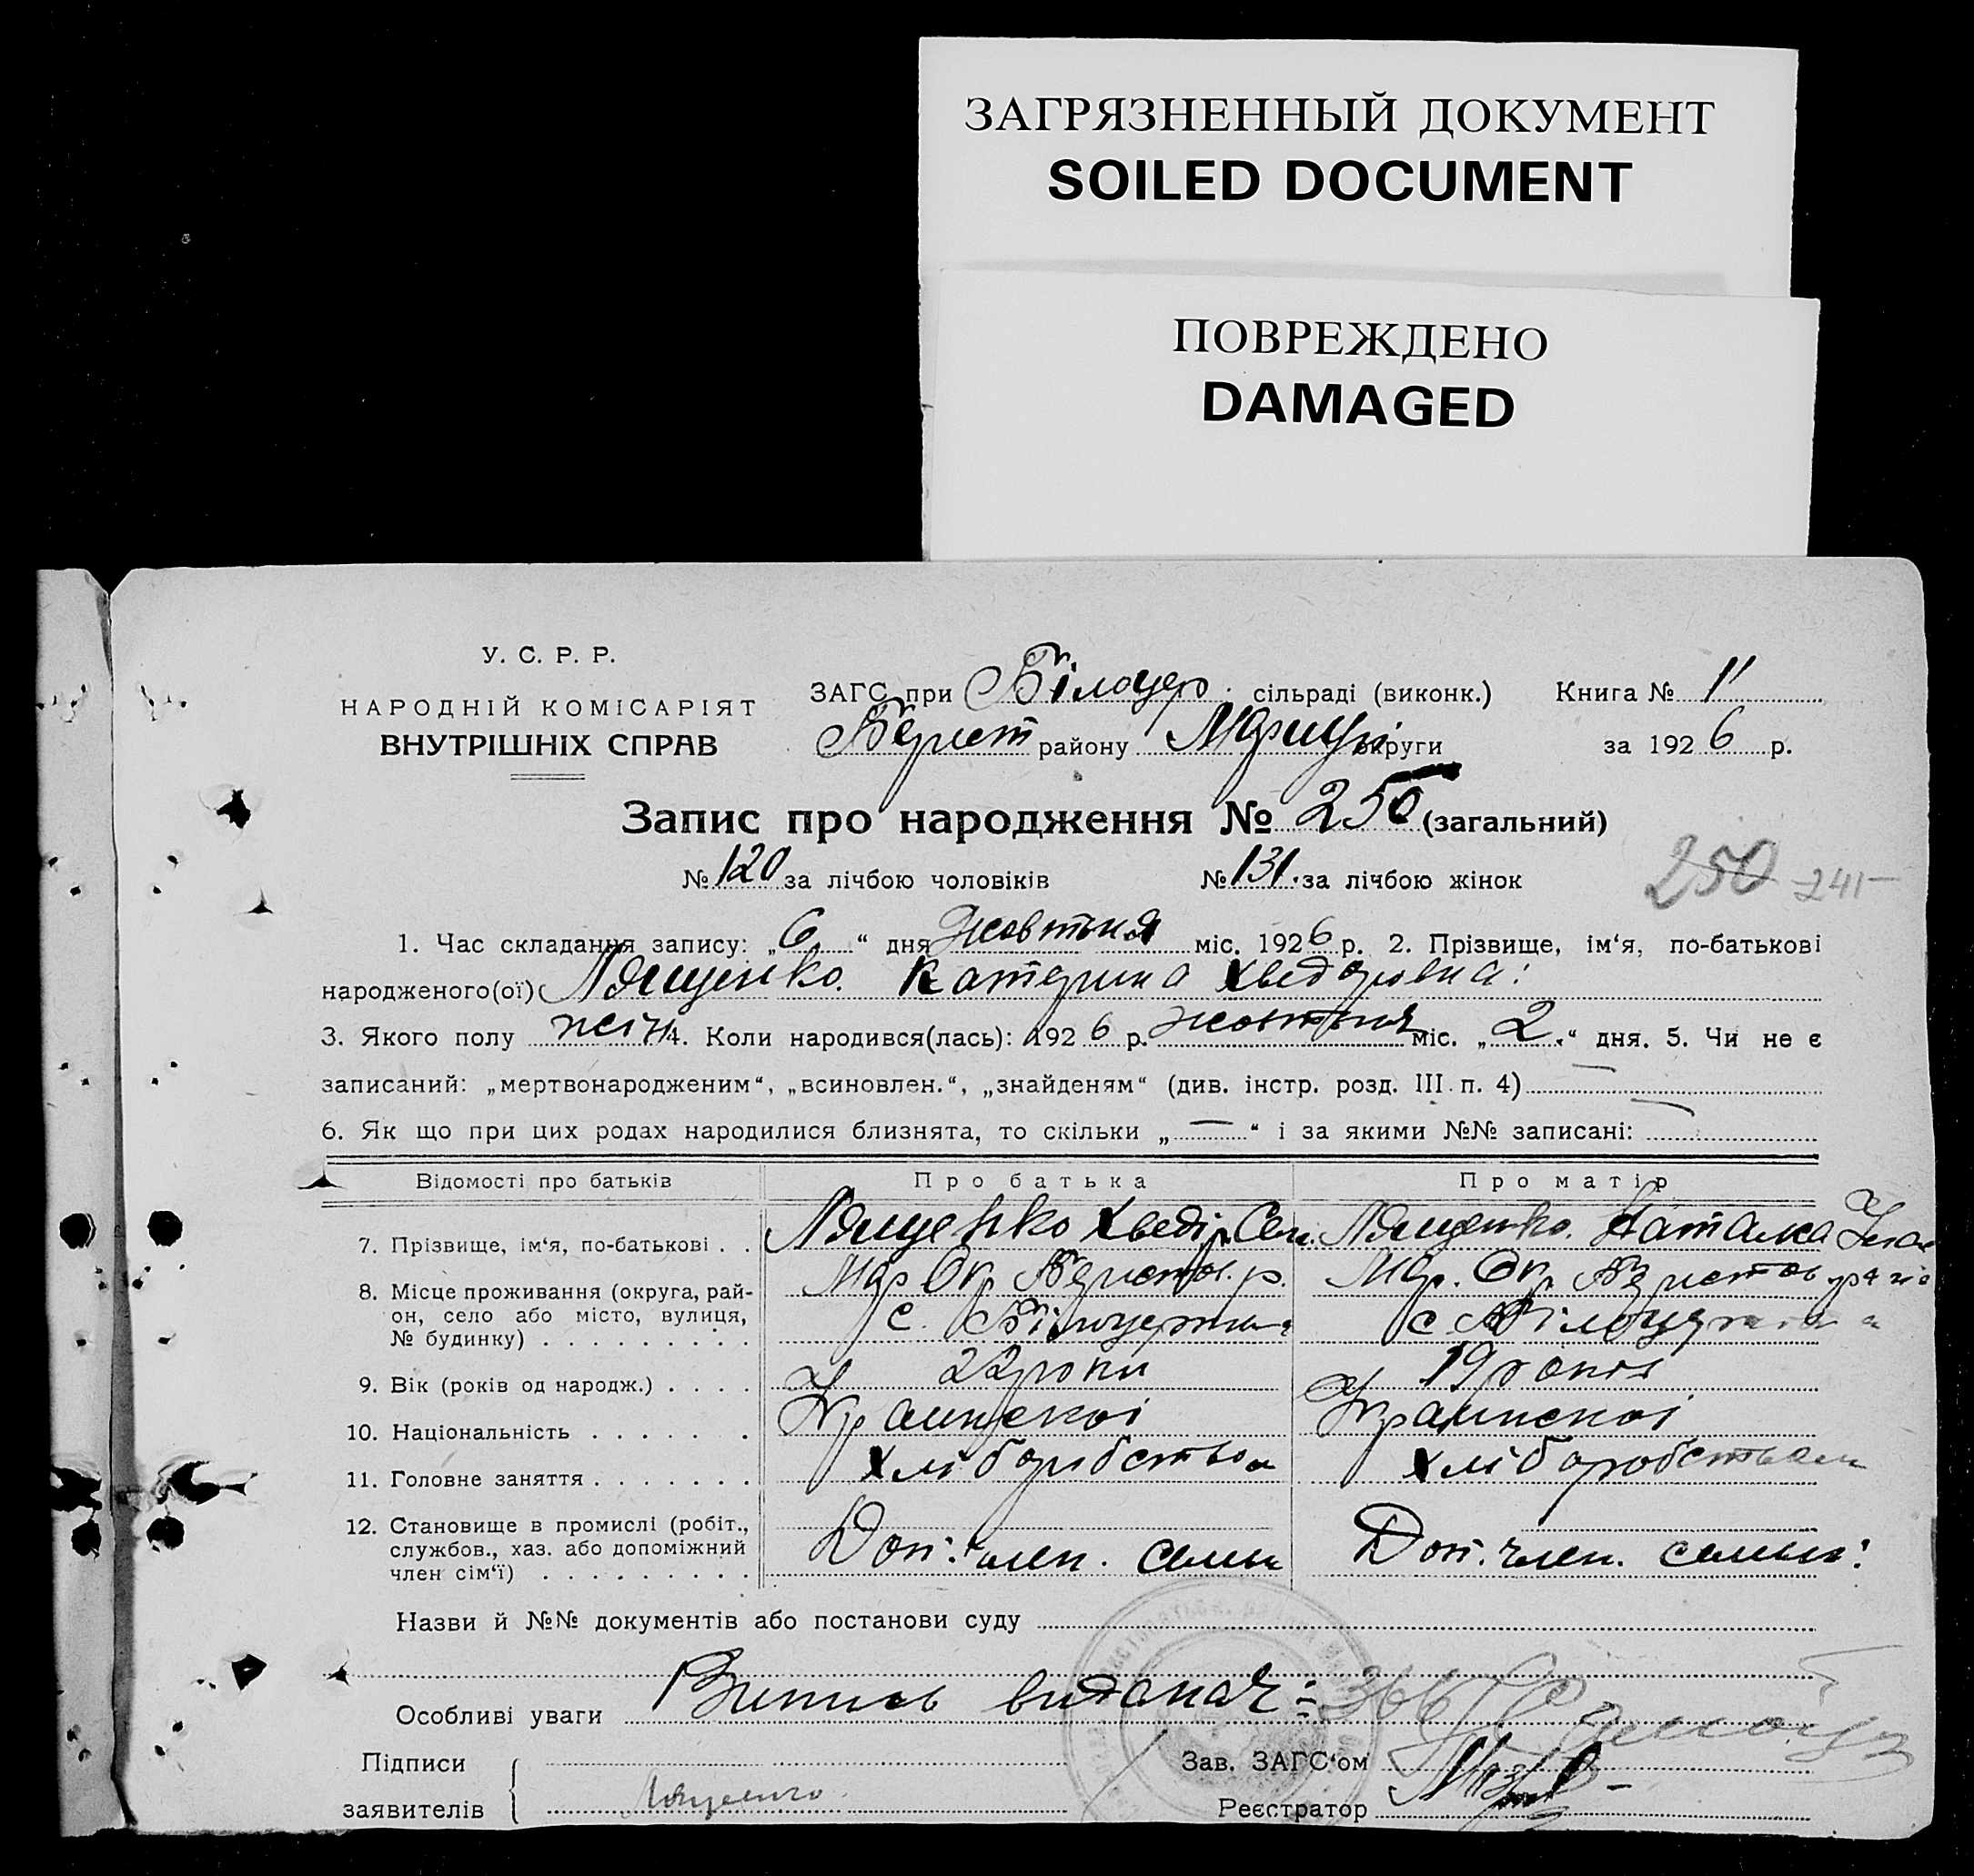 ЗАГРЯЗНЕННЫЙ ДОКУМЕНТ
SOILED DOCUMENT
ПОВРЕЖДЕНО
DAMAGED
У. С. Р. Р.
НАРОДНІЙ КОМІСАРІЯТ
ВНУТРІШНІХ СПРАВ
ЗАГС при Білоцер. сільраді (виконк.) Книга № 11
Берист району Маріуп округи за 1926 р.
Запис про народження № 250 (загальний)
№ 120 за лічбою чоловіків № 131. за лічбою жінок
250 241
1. Час складання запису: „6“ дня жовтня міс. 1926 р. 2. Прізвище, ім‘я, по-батькові
народженого(ої) Лященко. Катерина Хведоровна:
3. Якого полу жін 4. Коли народився(лась): 1926 р. жовтня міс. „2.“ дня. 5. Чи не є
записаний: „мертвонародженим“, „всиновлен.“, „знайденям“ (див. інстр. розд. III п. 4) —
6. Як що при цих родах народилися близнята, то скільки „—“ і за якими №№ записані: —
Відомості про батьків Про батька Про матір
7. Прізвище, ім‘я, по-батькові . . Лященко Хведір Сем. Лященко. Наталка
8. Місце проживання (округа, рай-
он, село або місто, вулиця,
№ будинку) . . . . . . . . .
Мар Окр Беристов. р. Мар. Окр Беристов
с. с.
9. Вік (років од народж.) . . . . 22 роки 19 років
10. Національність . . . . . . . Украинскоі Украинскоі
11. Головне заняття . . . . . . . Хліборобством Хліборобством
12. Становище в промислі (робіт.,
службов., хаз. або допоміжний
член сім‘ї) . . . . . . . . .
Доп. член. семьи Доп. член. семьи:
Назви й №№ документів або постанови суду
Особливі уваги Випись видана
Підписи
заявителів Лященко
Зав. ЗАГС‘ом
Реєстратор